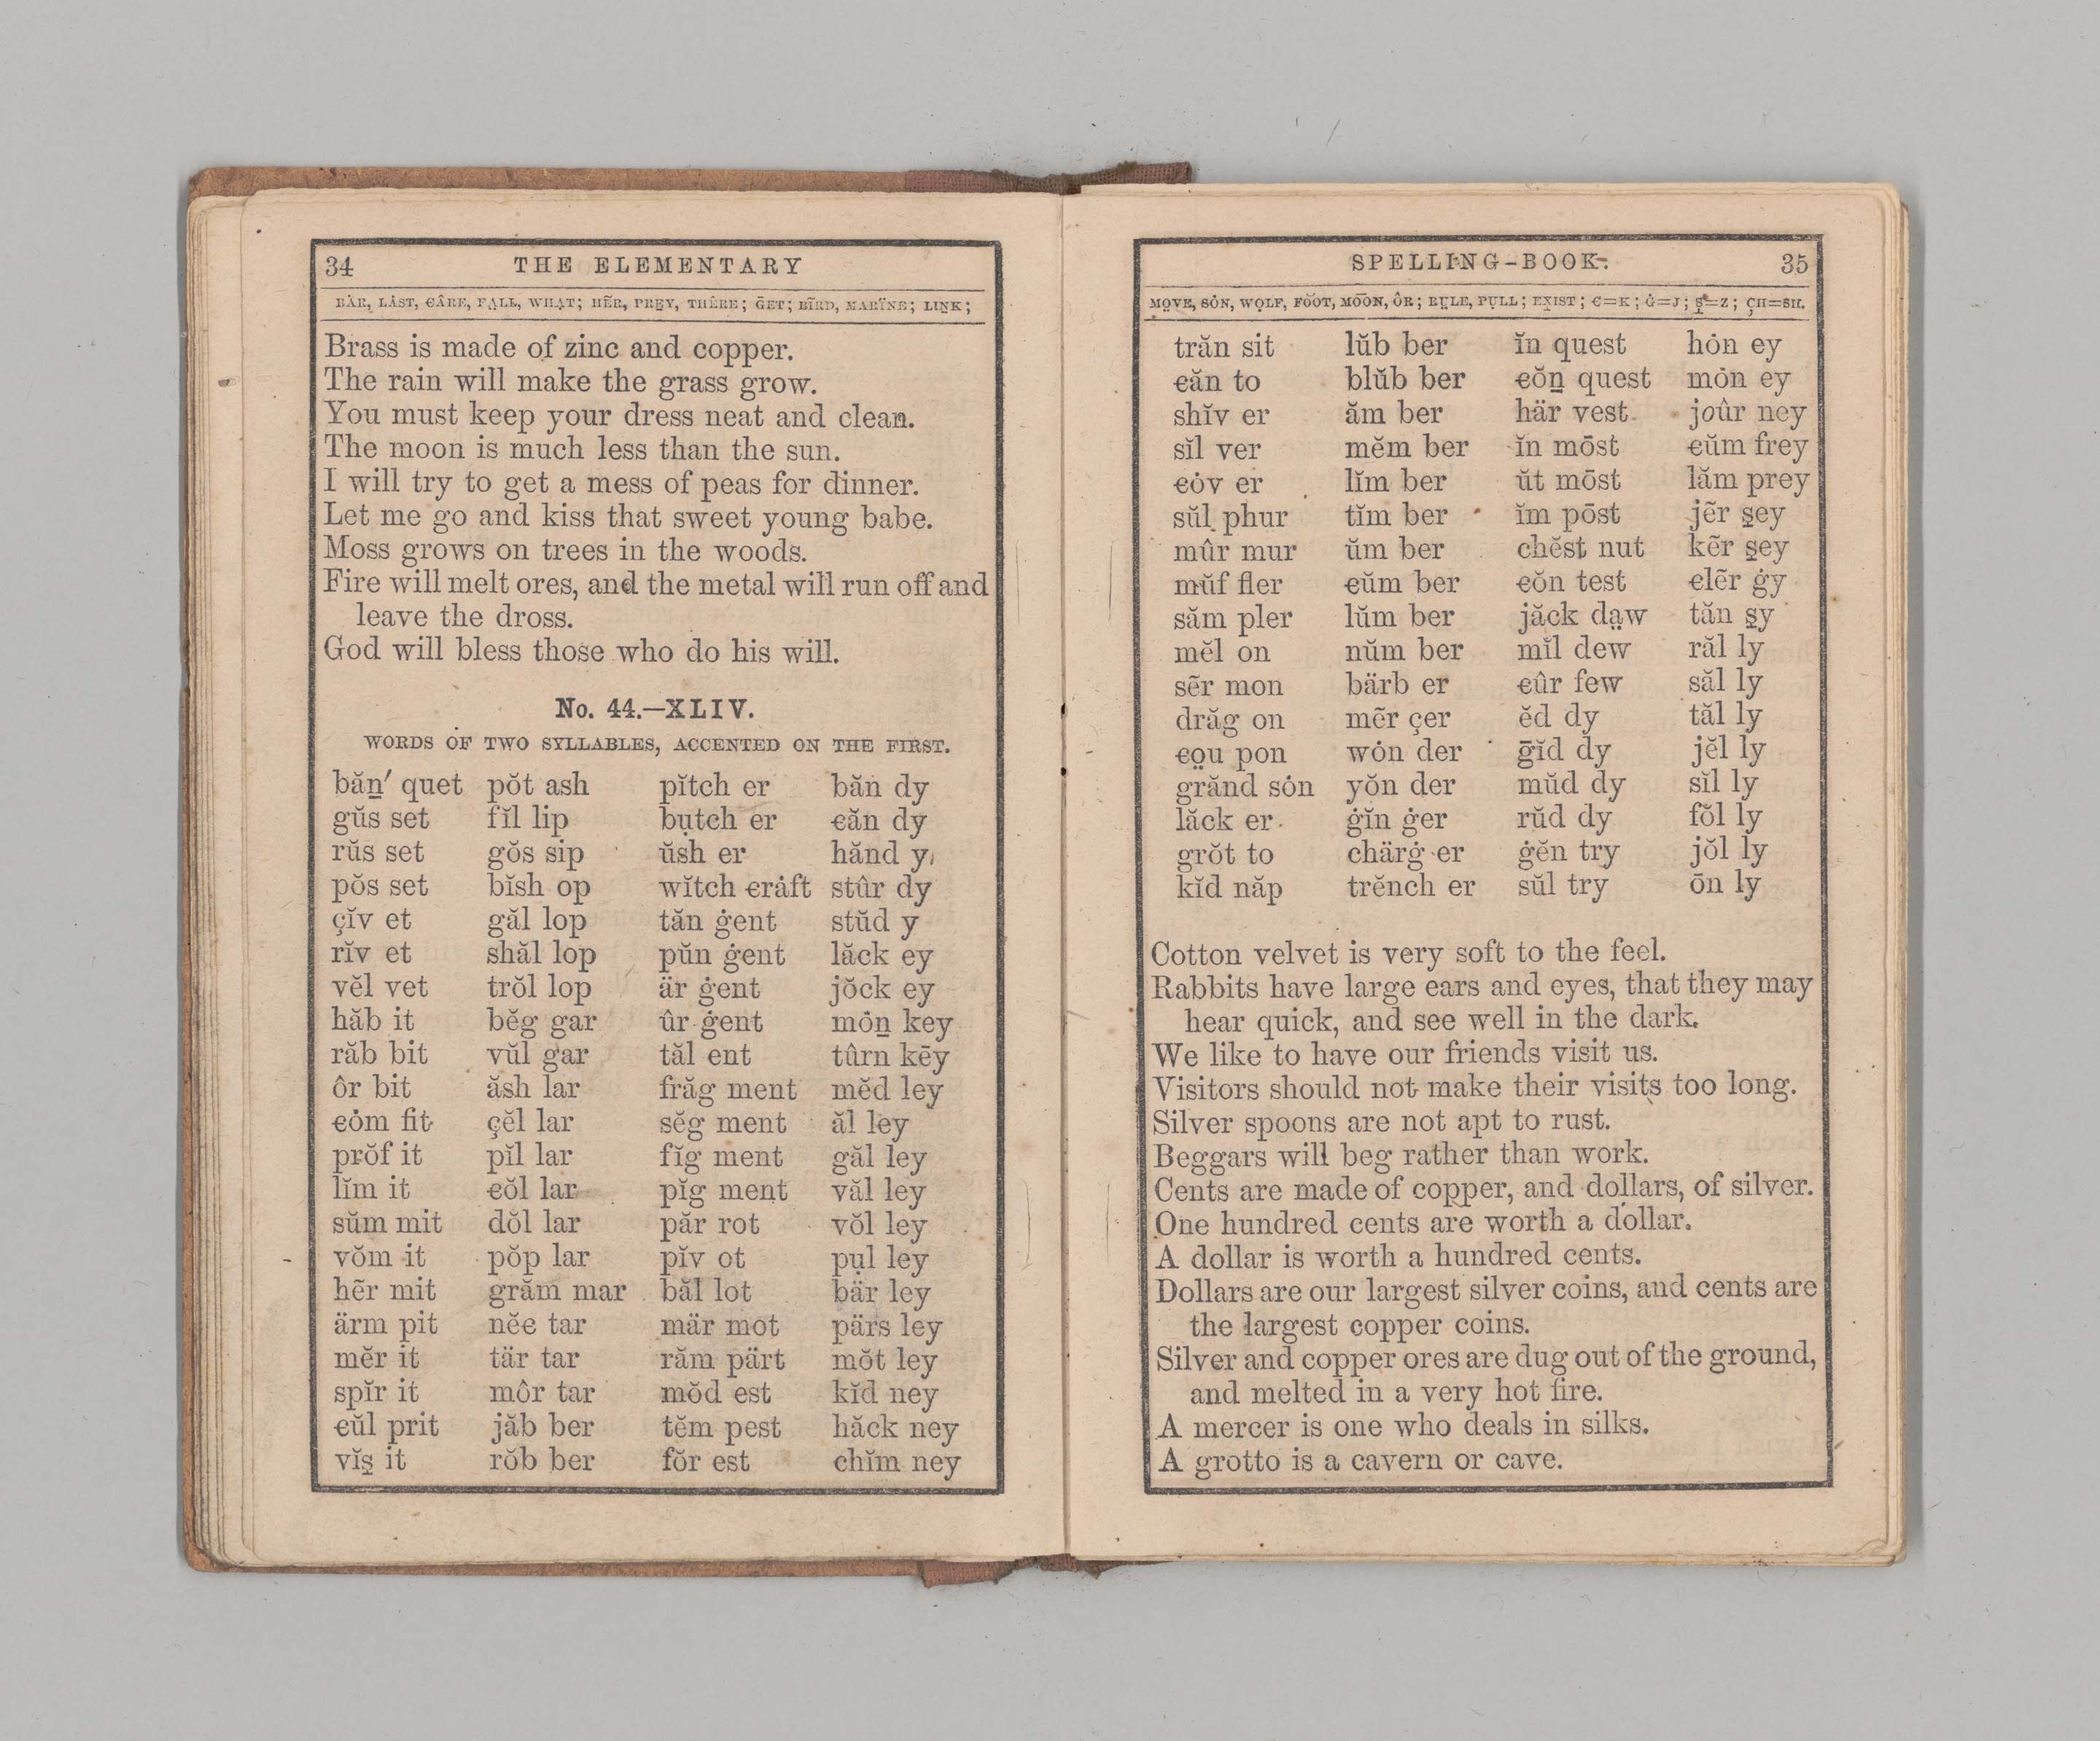 34 THE ELEMENTARY
BÄR, LȦST, ꞒÂRE, FA̤LL, WHẠT; HẼR, PRE̱Y, THÊRE; ḠET; BĨRD, MARÏNE; LIṈK;
Brass is made of zinc and copper.
The rain will make the grass grow.
You must keep your dress neat and clean.
The moon is much less than the sun.
I will try to get a mess of peas for dinner.
Let me go and kiss that sweet young babe.
Moss grows on trees in the woods.
Fire will melt ores, and the metal will run off and
leave the dross.
God will bless those who do his will.
No. 44.—XLIV.
WORDS OF TWO SYLLABLES, ACCENTED ON THE FIRST.
băṉ′ quet pŏt ash pĭtch er băn dy
gŭs set fĭl lip bụtch er ꞓăn dy
rŭs set gŏs sip ŭsh er hănd y
pŏs set bĭsh op wĭtch ꞓrȧft stûr dy
çĭv et găl lop tăn ġent stŭd y
rĭv et shăl lop pŭn ġent lăck ey
vĕl vet trŏl lop är ġent jŏck ey
hăb it bĕg gar ûr ġent mȯṉ key
răb bit vŭl gar tăl ent tûrn kēy
ôr bit ăsh lar frăg ment mĕd ley
ꞓȯm fit çĕl lar sĕg ment ăl ley
prŏf it pĭl lar fĭg ment găl ley
lĭm it ꞓŏl lar pĭg ment văl ley
sŭm mit dŏl lar păr rot vŏl ley
vŏm it pŏp lar pĭv ot pụl ley
hẽr mit grăm mar băl lot bär ley
ärm pit nĕꞓ tar mär mot pärs ley
mĕr it tär tar răm pärt mŏt ley
spĭr it môr tar mŏd est kĭd ney
ꞓŭl prit jăb ber tĕm pest hăck ney
vĭs̱ it rŏb ber fŏr est chĭm ney
SPELLING-BOOK. 35
MO̤VE, SȮN, WỌLF, FO͝OT, MO͞ON, ÔR; RṲLE, PỤLL; EX̱IST; Ꞓ=K; Ġ=J; S̱=Z; ÇH=SH.
trăn sit lŭb ber ĭn quest hȯn ey
ꞓăn to blŭb ber ꞓŏṉ quest mȯn ey
shĭv er ăm ber här vest joûr ney
sĭl ver mĕm ber ĭn mōst ꞓŭm frey
ꞓȯv er lĭm ber ŭt mōst lăm prey
sŭl phur tĭm ber ĭm pōst jẽr s̱ey
mûr mur ŭm ber chĕst nut kẽr s̱ey
mŭf fler ꞓŭm ber ꞓŏn test ꞓlẽr ġy
săm pler lŭm ber jăck da̤w tăn s̱y
mĕl on nŭm ber mĭl dew răl ly
sẽr mon bärb er ꞓûr few săl ly
drăg on mẽr çer ĕd dy tăl ly
ꞓo̤u pon wȯn der ḡĭd dy jĕl ly
grănd sȯn yŏn der mŭd dy sĭl ly
lăck er ġĭn ġer rŭd dy fŏl ly
grŏt to chärġ er ġĕn try jŏl ly
kĭd năp trĕnch er sŭl try ōn ly
Cotton velvet is very soft to the feel.
Rabbits have large ears and eyes, that they may
hear quick, and see well in the dark.
We like to have our friends visit us.
Visitors should not make their visits too long.
Silver spoons are not apt to rust.
Beggars will beg rather than work.
Cents are made of copper, and dollars, of silver.
One hundred cents are worth a dollar.
A dollar is worth a hundred cents.
Dollars are our largest silver coins, and cents are
the largest copper coins.
Silver and copper ores are dug out of the ground,
and melted in a very hot fire.
A mercer is one who deals in silks.
A grotto is a cavern or cave.